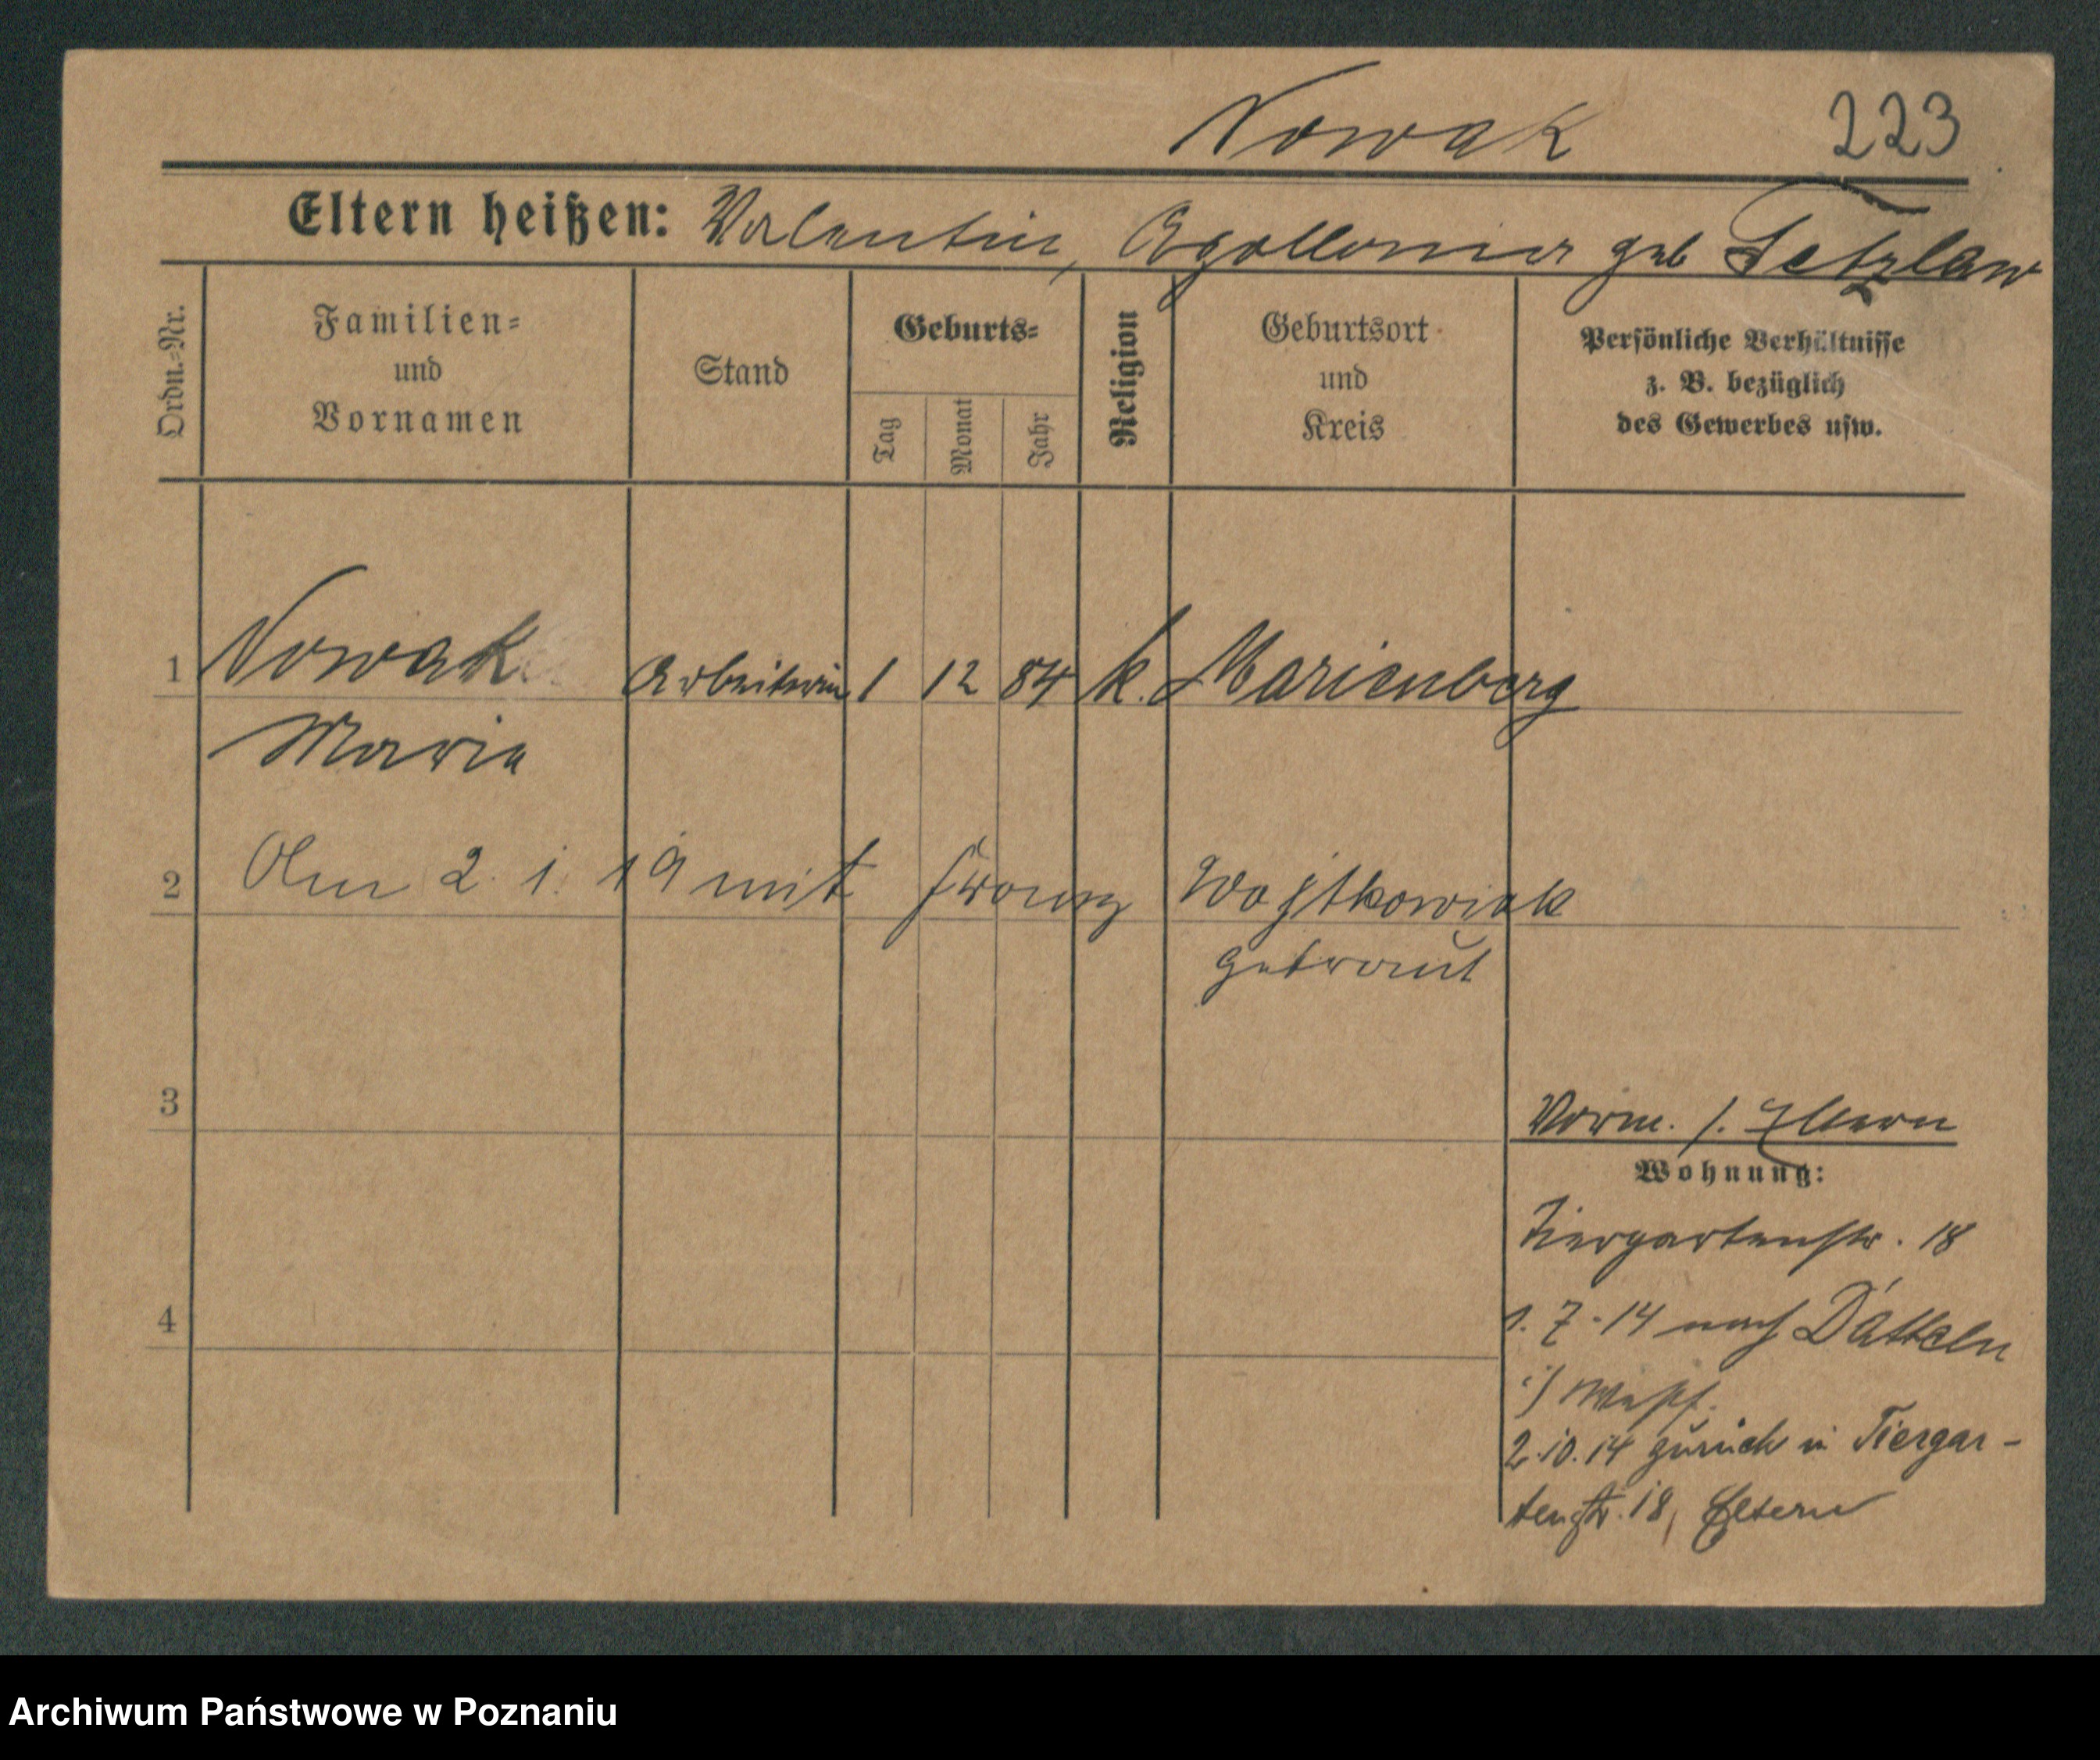 Nowak 223
Eltern heißen: Valentin, Apollonia geb Tetzlaw
Ordn.-Nr.
Familien-
und
Vornamen
Stand
Geburts-
Tag
Monat
Jahr
Religion
Geburtsort
und
Kreis
Persönliche Verhältnisse
z. B. bezüglich
des Gewerbes usw.
1 Nowak Arbeiterin 1 12 84 k. Marienberg
Maria
2 Am 2. 1. 19 mit Franz Wojtkowiak
getraut
3
Vorm. s. Eltern
Wohnung:
Tiergartenstr. 18
4
1. 7. 14 nach Datteln
i/ Westf.
2.10.14 zurück in Tiergar-
tenstr. 18, Eltern
Archiwum Państwowe w Poznaniu